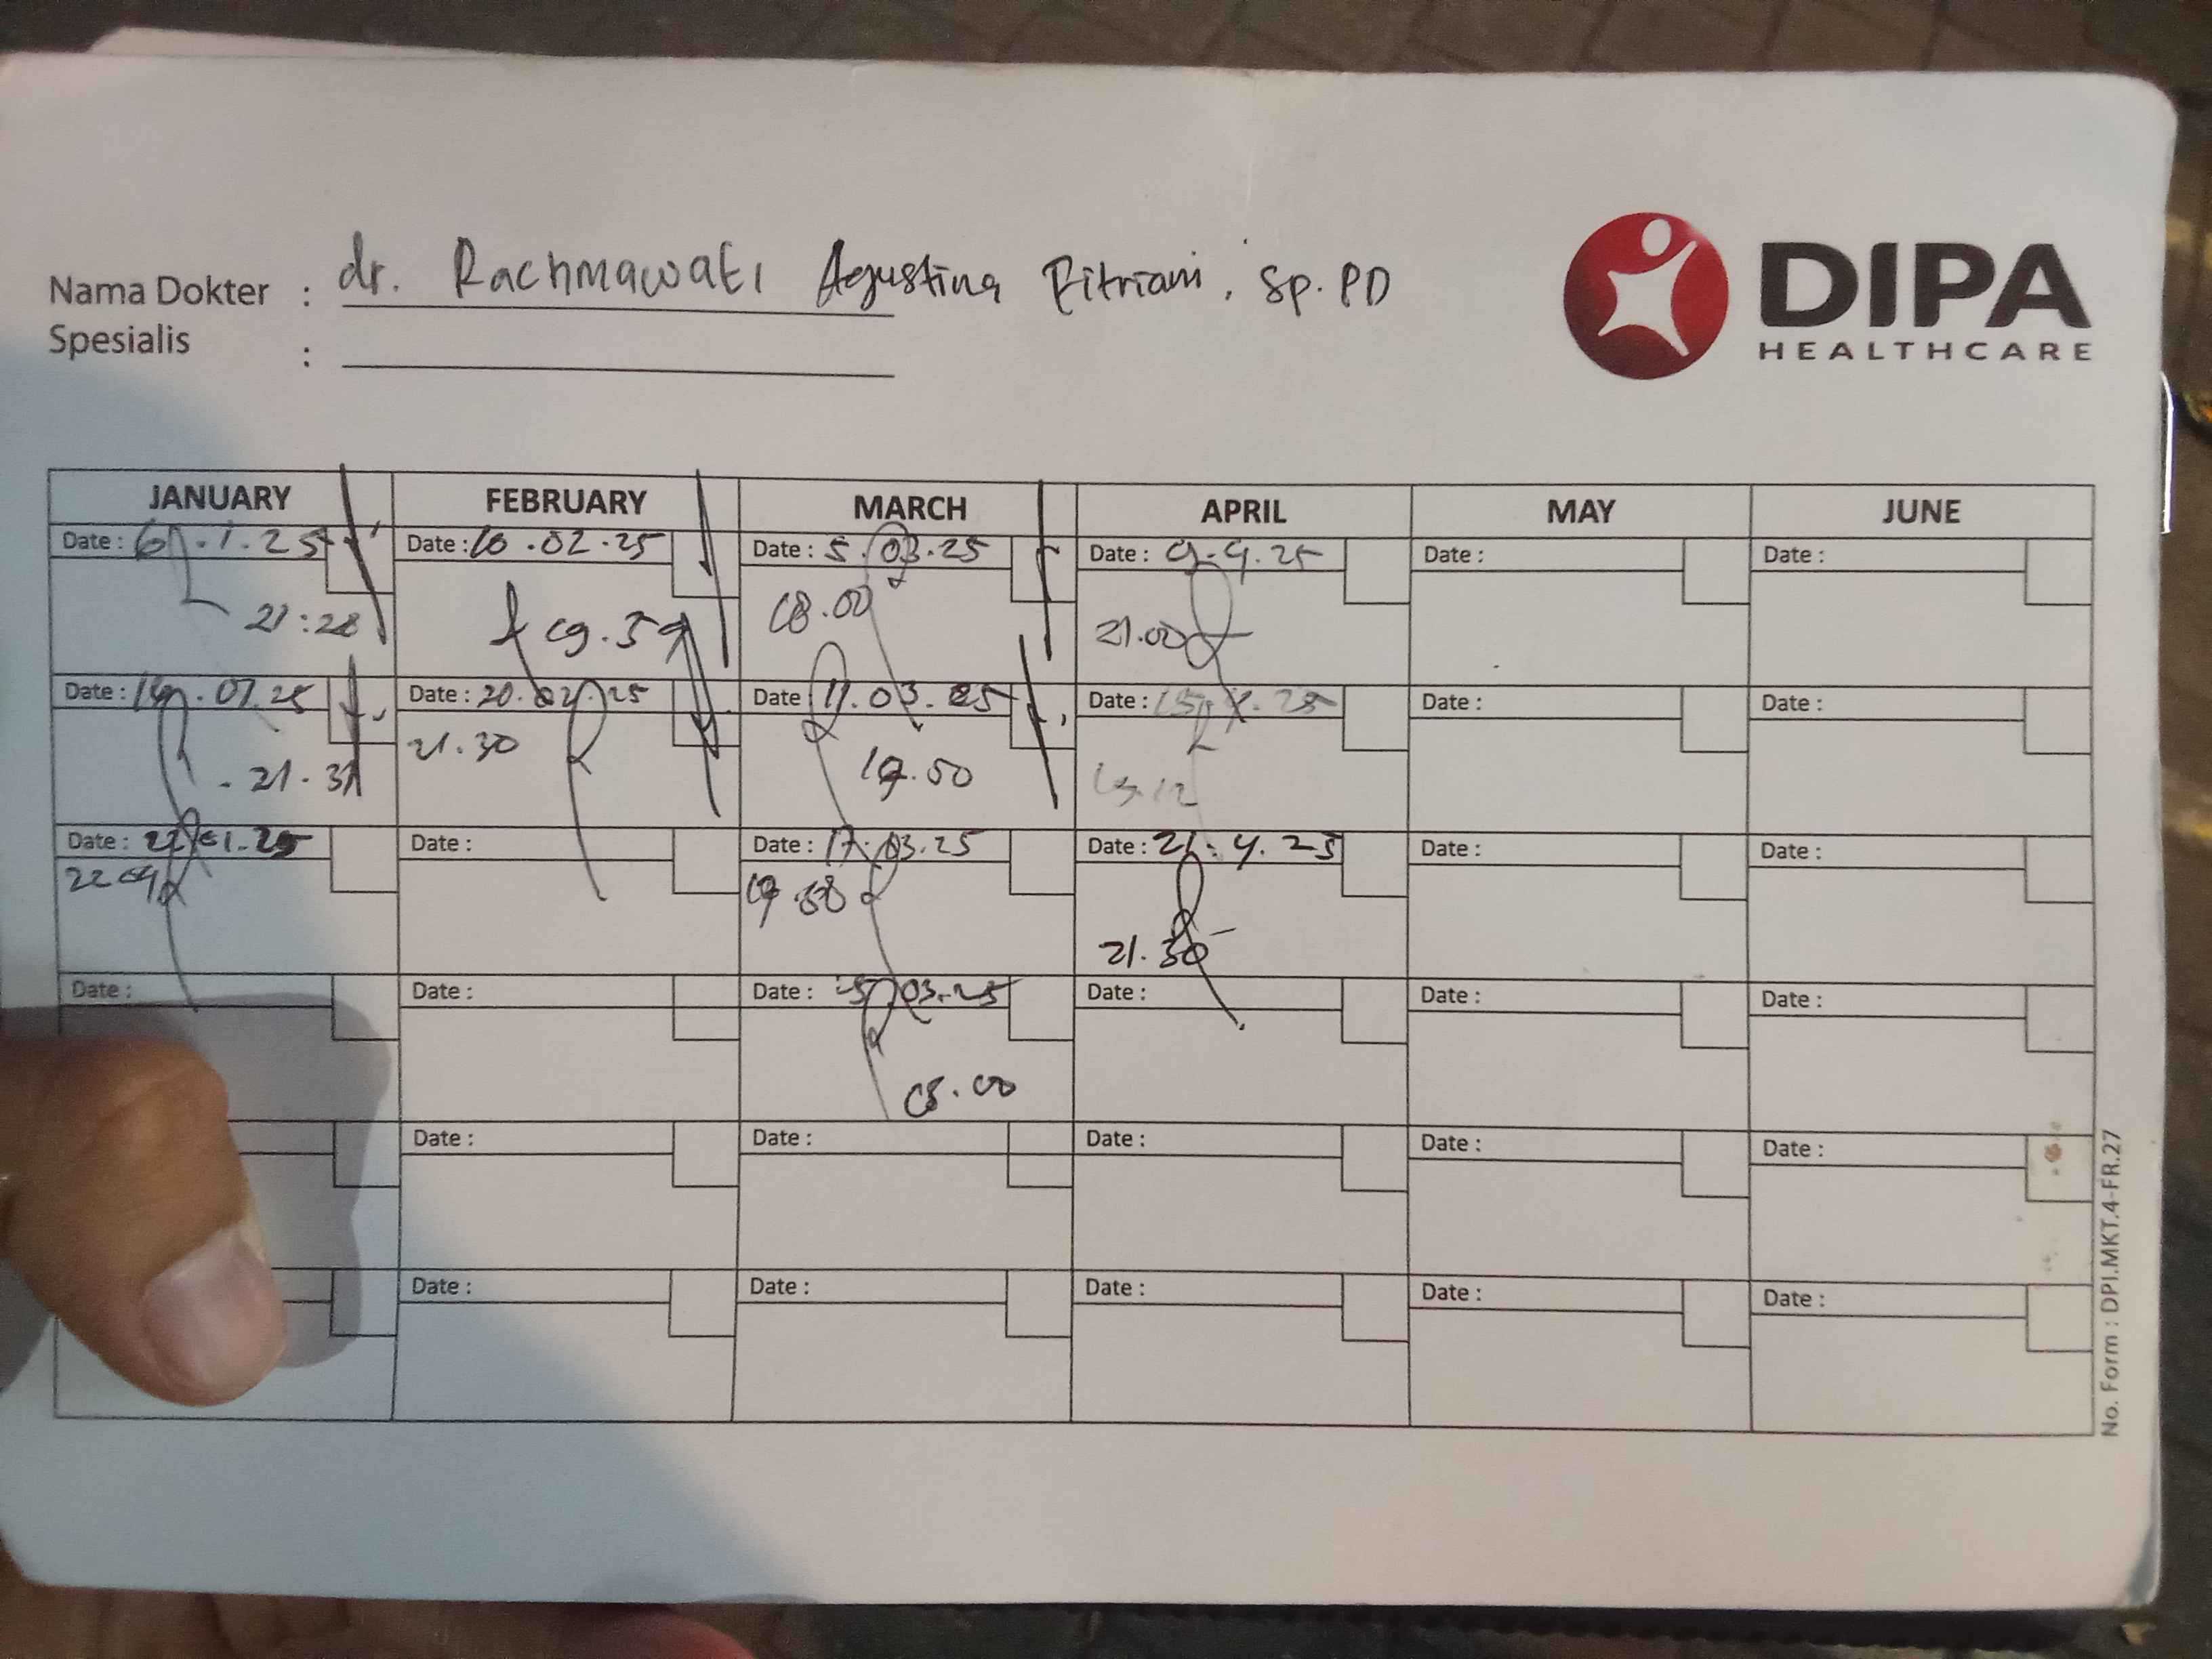 DIPA
HEALTHCARE
Nama Dokter : dr. Rachmawati Agustina Fitriani, Sp.PD
Spesialis :
JANUARY FEBRUARY MARCH APRIL MAY JUNE
Date : 6.1.25 Date : 10.02.25 Date : 5.03.25 Date : 9.4.25 Date : Date :
21:28 18.00 21.00
Date : Date : 20.02.25 Date : 11.03.25 Date : 15.4.25 Date : Date :
21.31 21.30 19.50
Date : 22.01.25 Date : Date : 17.03.25 Date : 21.4.25 Date : Date :
21.30
Date : Date : Date : Date : Date : Date :
Date : Date : Date : Date : Date :
Date : Date : Date : Date : Date :
No. Form : DPI.MKT.4-FR.27